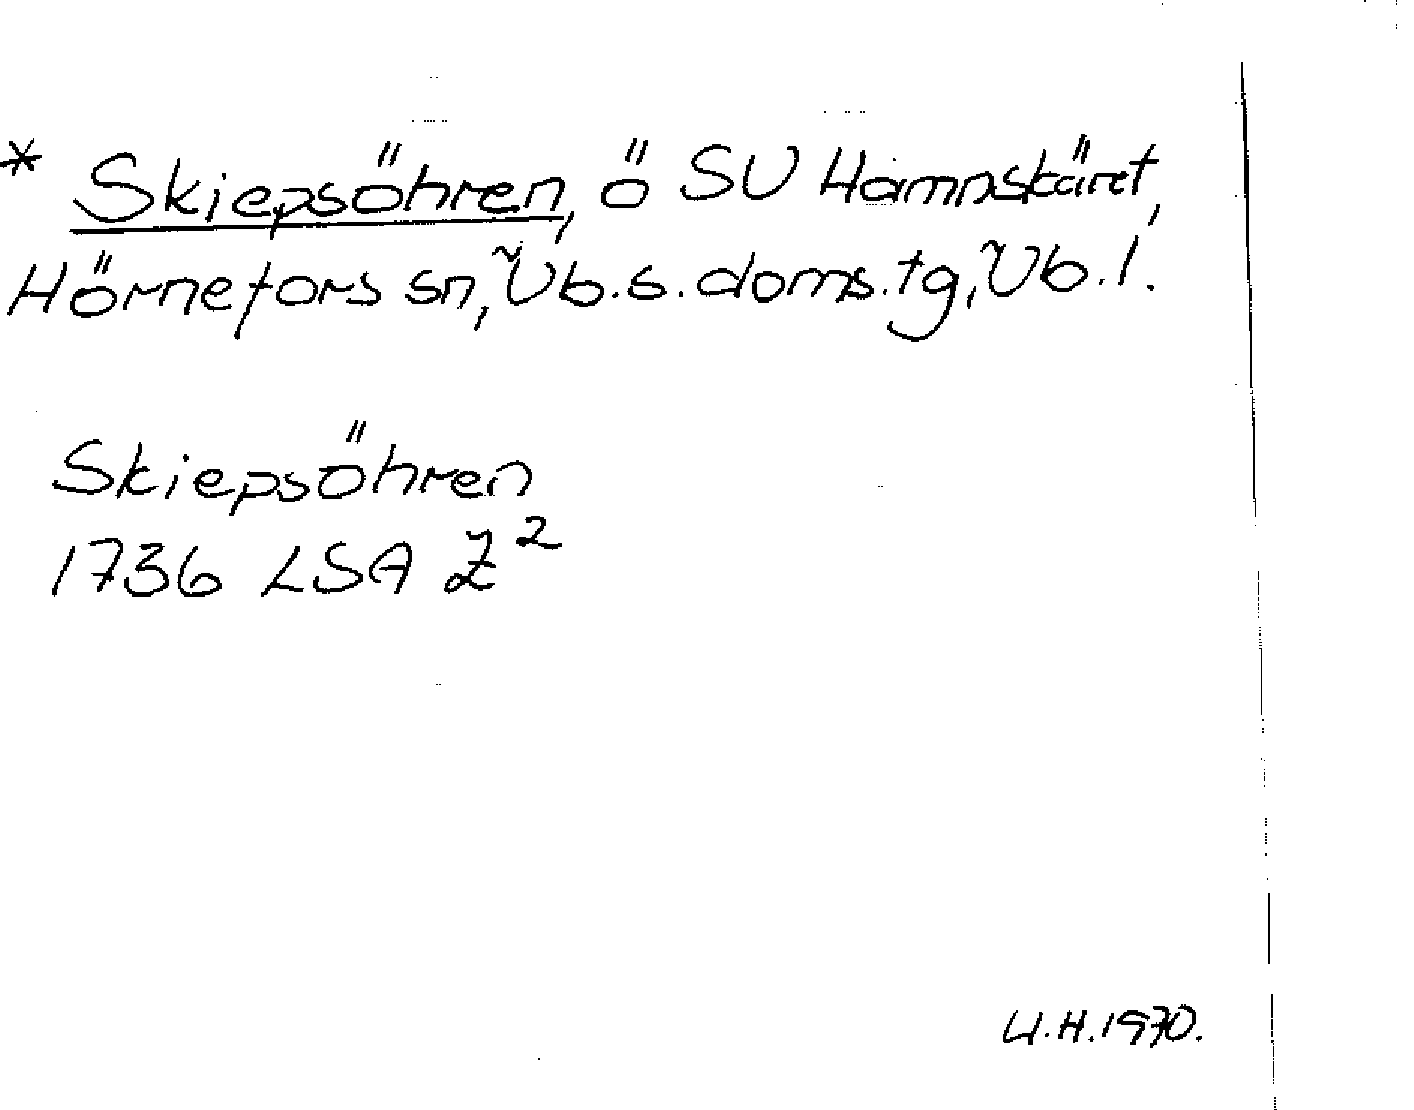 * Skiepsöhren, ö SV Hamnskäret,
Hörnefors sn, Vb.s.doms.tg, Vb.l.
Skiepsöhren
1736 LSA Z²
U.H.1970.